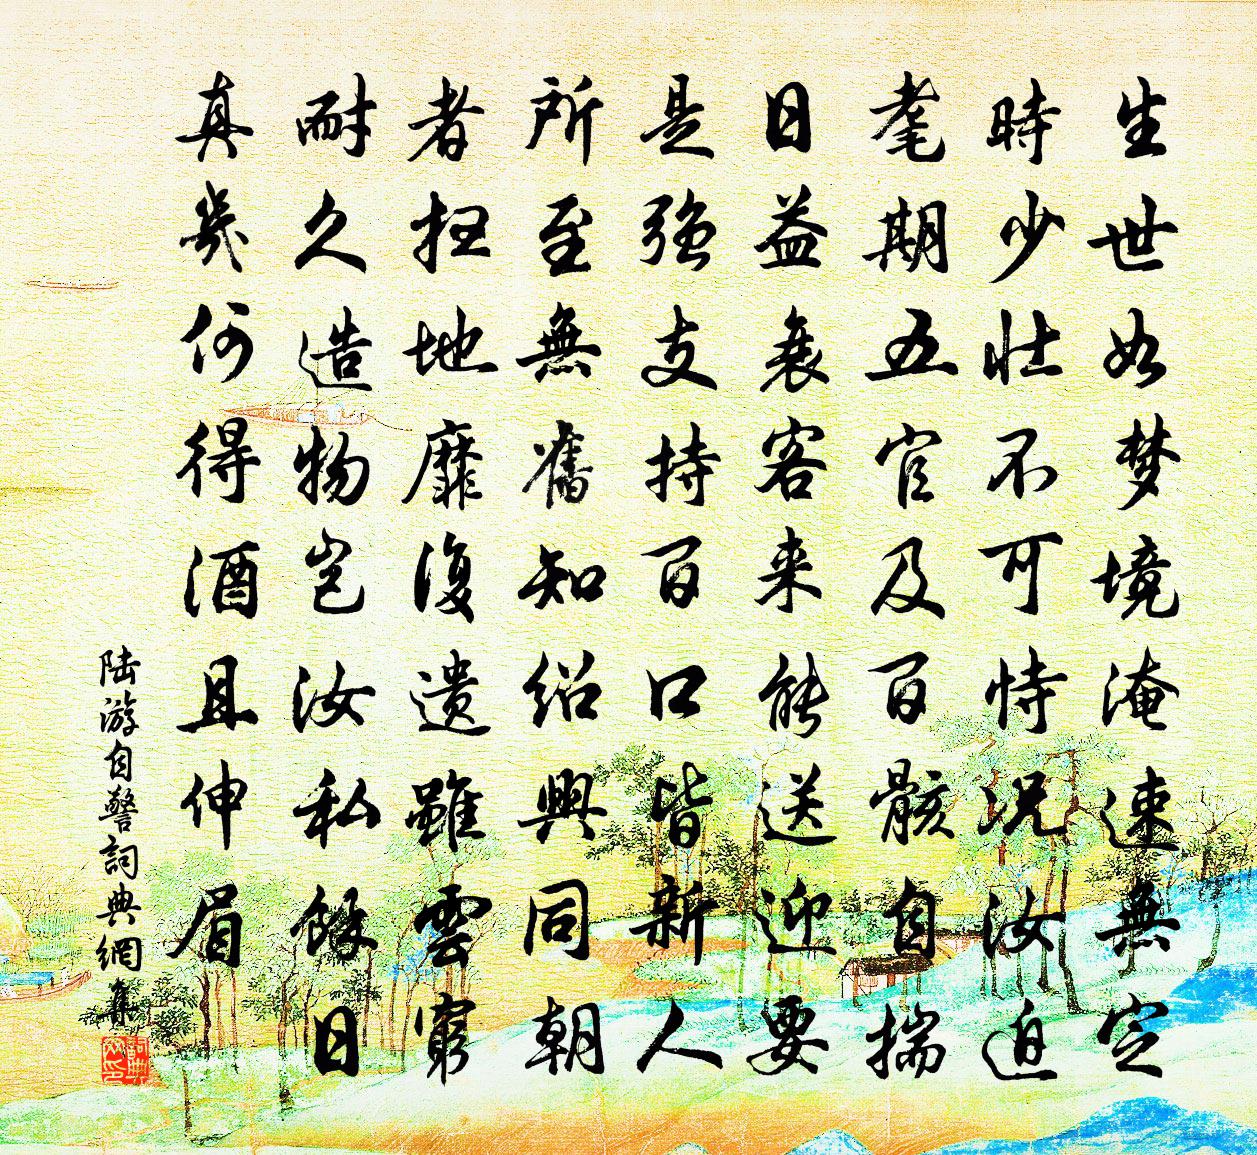 生世如梦境淹速無定
時少壮不可恃况汝迫
耄期五官及百骸自揣
日益衰客来能送迎要
是強支持百口皆新人
所至無舊知紹興同朝
者扫地靡復遺雖雲窮
耐久造物岂汝私餘日
真幾何得酒且伸眉
陆游自警詞典網集